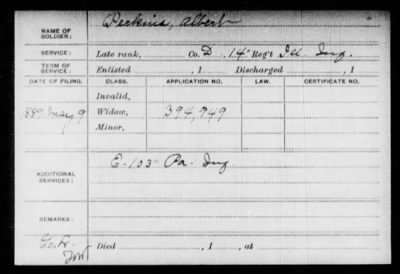 NAME OF SOLDIER: Perkins, Albert
SERVICE: Late rank, Co. D, 14" Reg't Ill. Inf.
TERM OF SERVICE: Enlisted , 1 Discharged , 1
DATE OF FILING. CLASS. APPLICATION NO. LAW. CERTIFICATE NO.
Invalid,
May 9 Widow, 394,949
Minor,
ADDITIONAL SERVICES: E-103" Pa. Inf
REMARKS:
Died , 1 , at